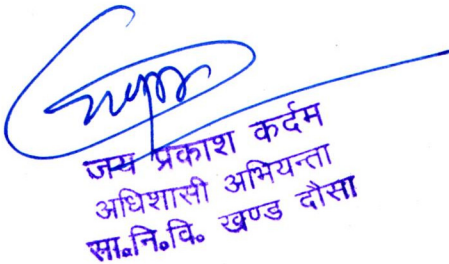 जय प्रकाश कर्दम
अधिशासी अभियन्ता
सा.नि.वि. खण्ड दौसा